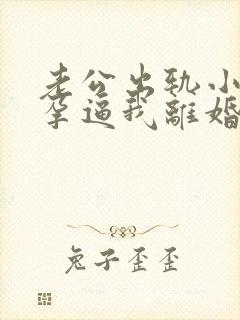 老公出轨小
孕逼我離婚
兔子歪歪